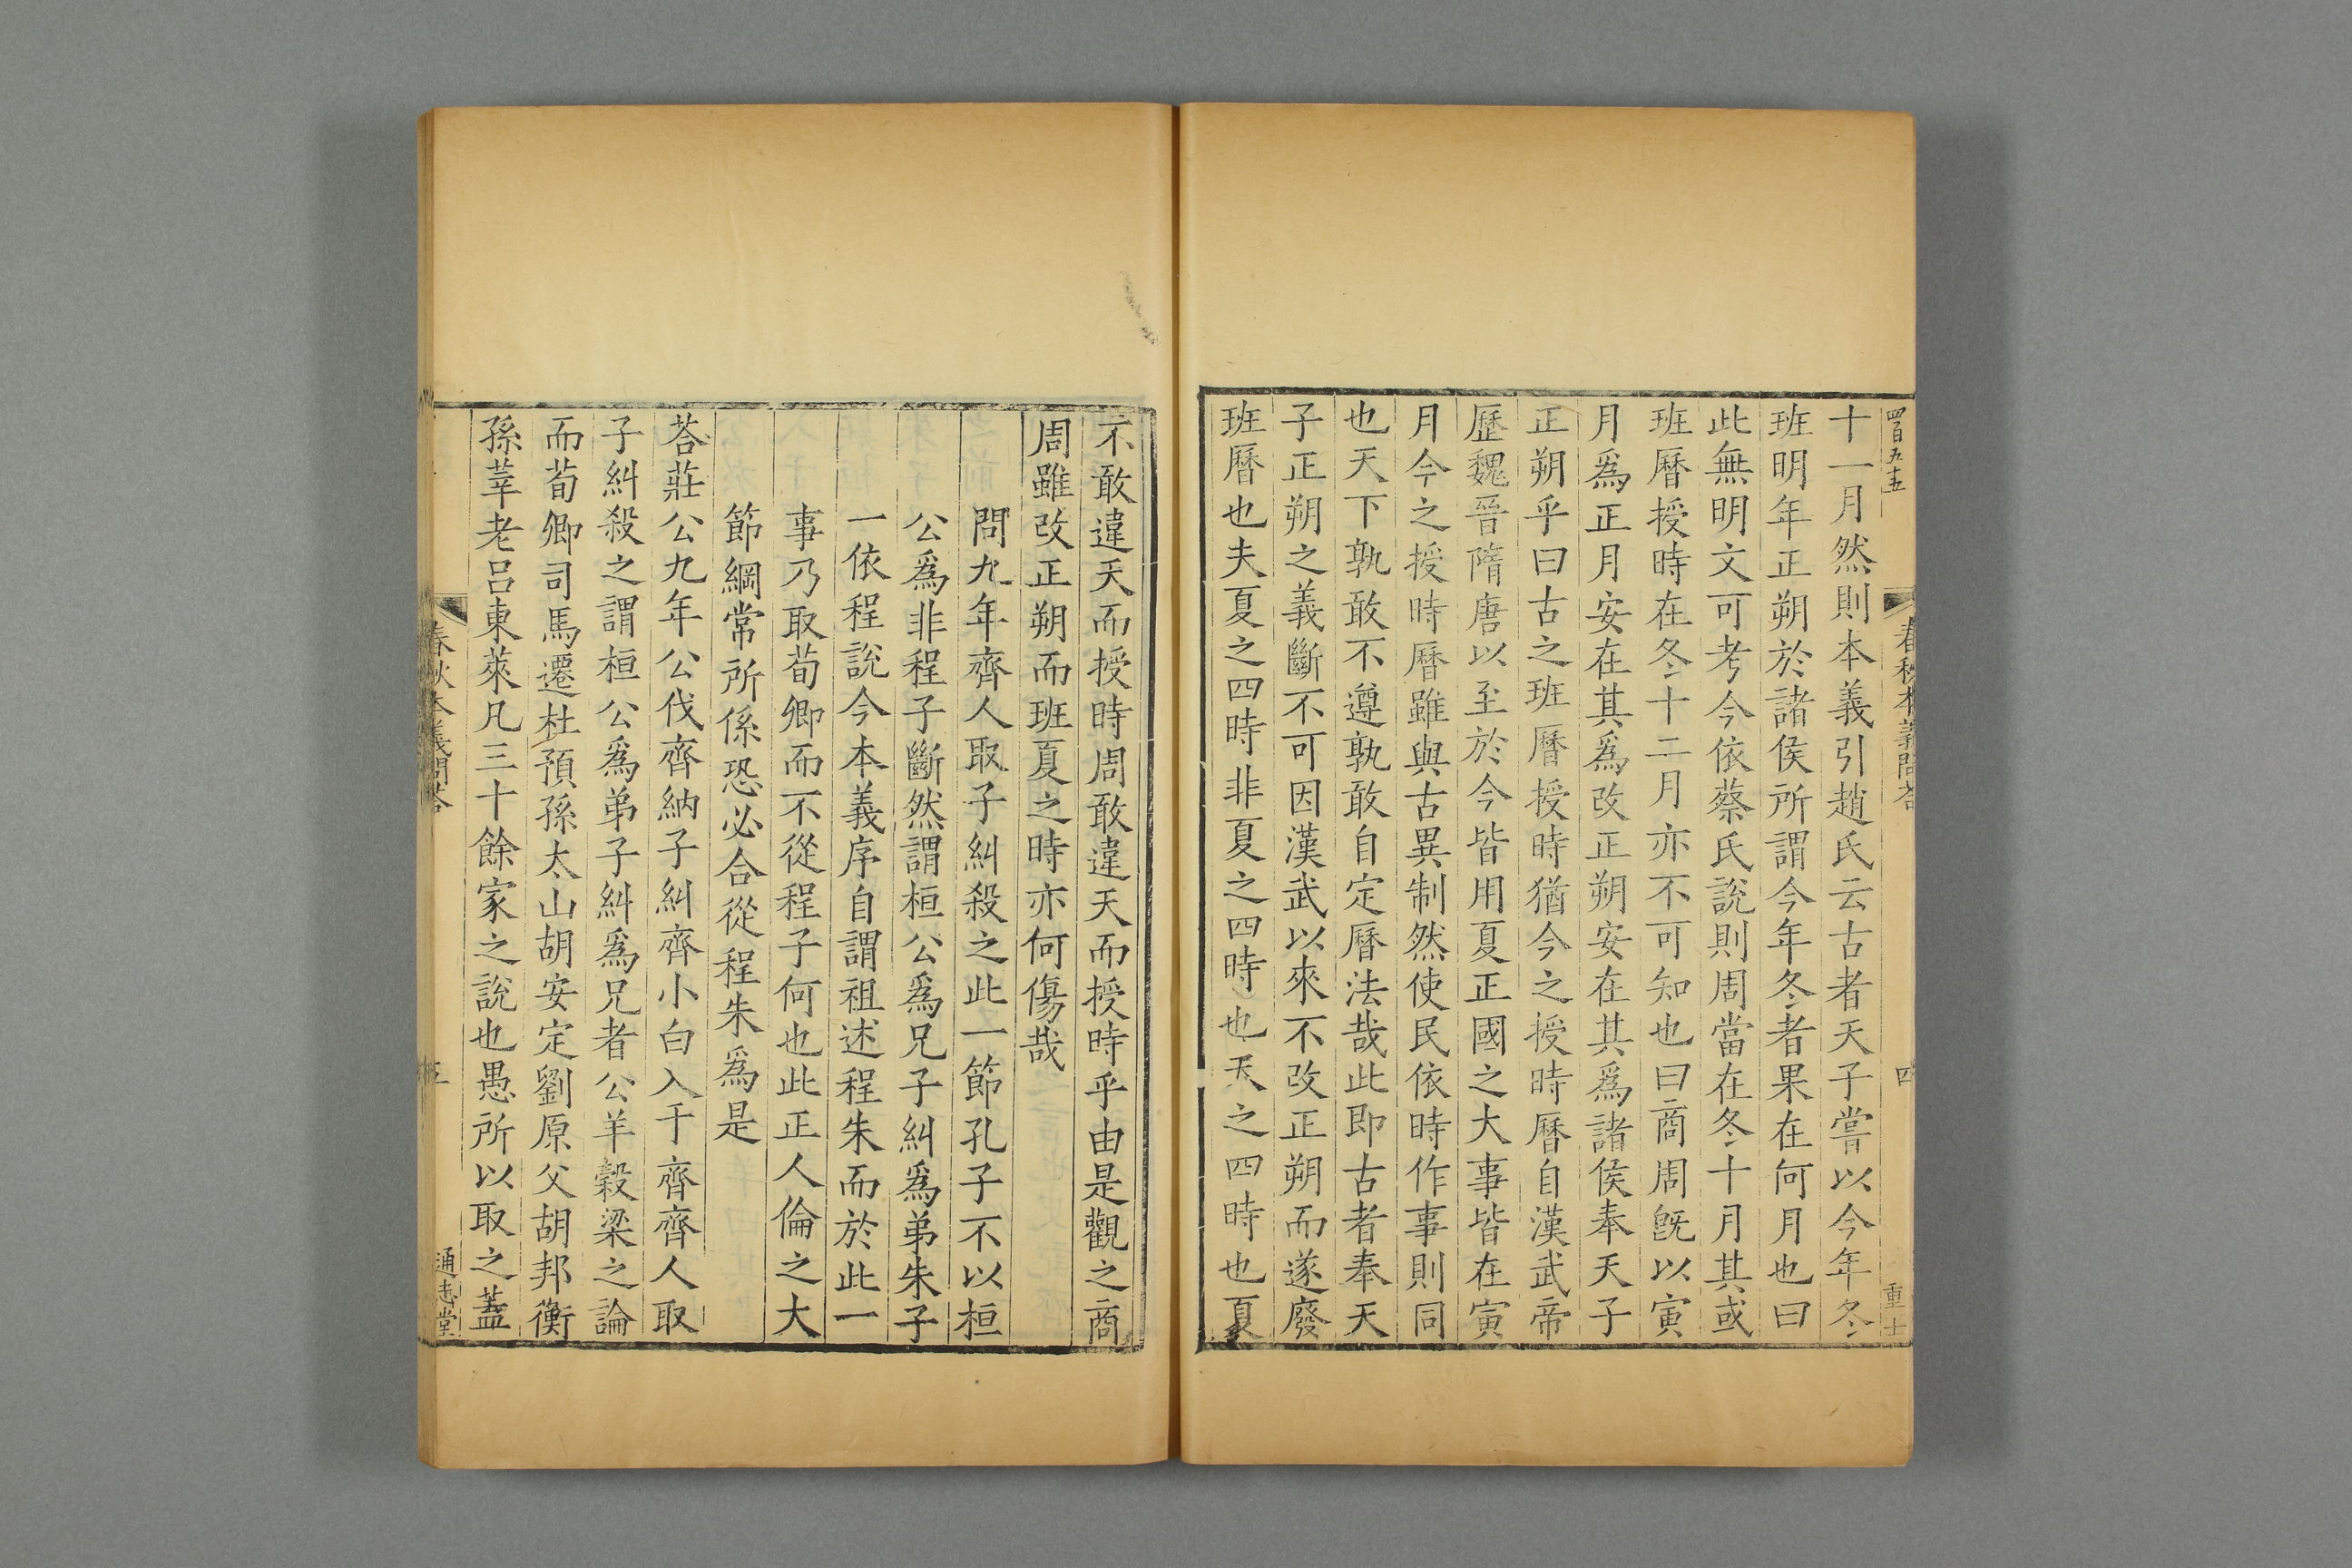 四百五十五
春秋本義問荅
四
十一月然則本義引趙氏云古者天子嘗以今年冬
班明年正朔於諸侯所謂今年冬者果在何月也曰
此無明文可考今依蔡氏說則周當在冬十月其或
班曆授時在冬十二月亦不可知也曰商周旣以寅
月爲正月安在其爲改正朔安在其爲諸侯奉天子
正朔乎曰古之班曆授時猶今之授時曆自漢武帝
歷魏晉隋唐以至於今皆用夏正國之大事皆在寅
月今之授時曆雖與古異制然使民依時作事則同
也天下孰敢不遵孰敢自定曆法哉此即古者奉天
子正朔之義斷不可因漢武以來不改正朔而遂廢
班曆也夫夏之四時非夏之四時也天之四時也夏
不敢違天而授時周敢違天而授時乎由是觀之商
周雖改正朔而班夏之時亦何傷哉
問九年齊人取子糾殺之此一節孔子不以桓
公爲非程子斷然謂桓公爲兄子糾爲弟朱子
一依程說今本義序自謂祖述程朱而於此一
事乃取荀卿而不從程子何也此正人倫之大
節綱常所係恐必合從程朱爲是
荅莊公九年公伐齊納子糾齊小白入于齊齊人取
子糾殺之謂桓公爲弟子糾爲兄者公羊穀梁之論
而荀卿司馬遷杜預孫太山胡安定劉原父胡邦衡
孫莘老呂東萊凡三十餘家之說也愚所以取之蓋
春秋本義問荅
五
通志堂